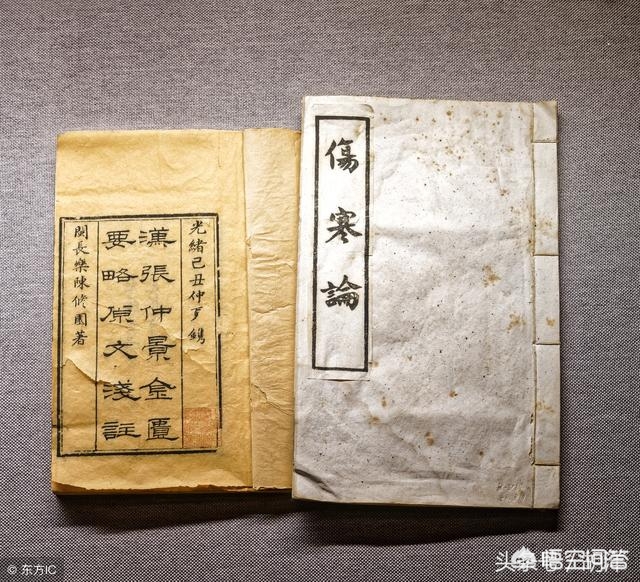 傷寒論
光緒己丑仲夏鐫
漢張仲景金匱
要略原文淺註
閩長樂陳修園著
© 东方IC
悟空问答